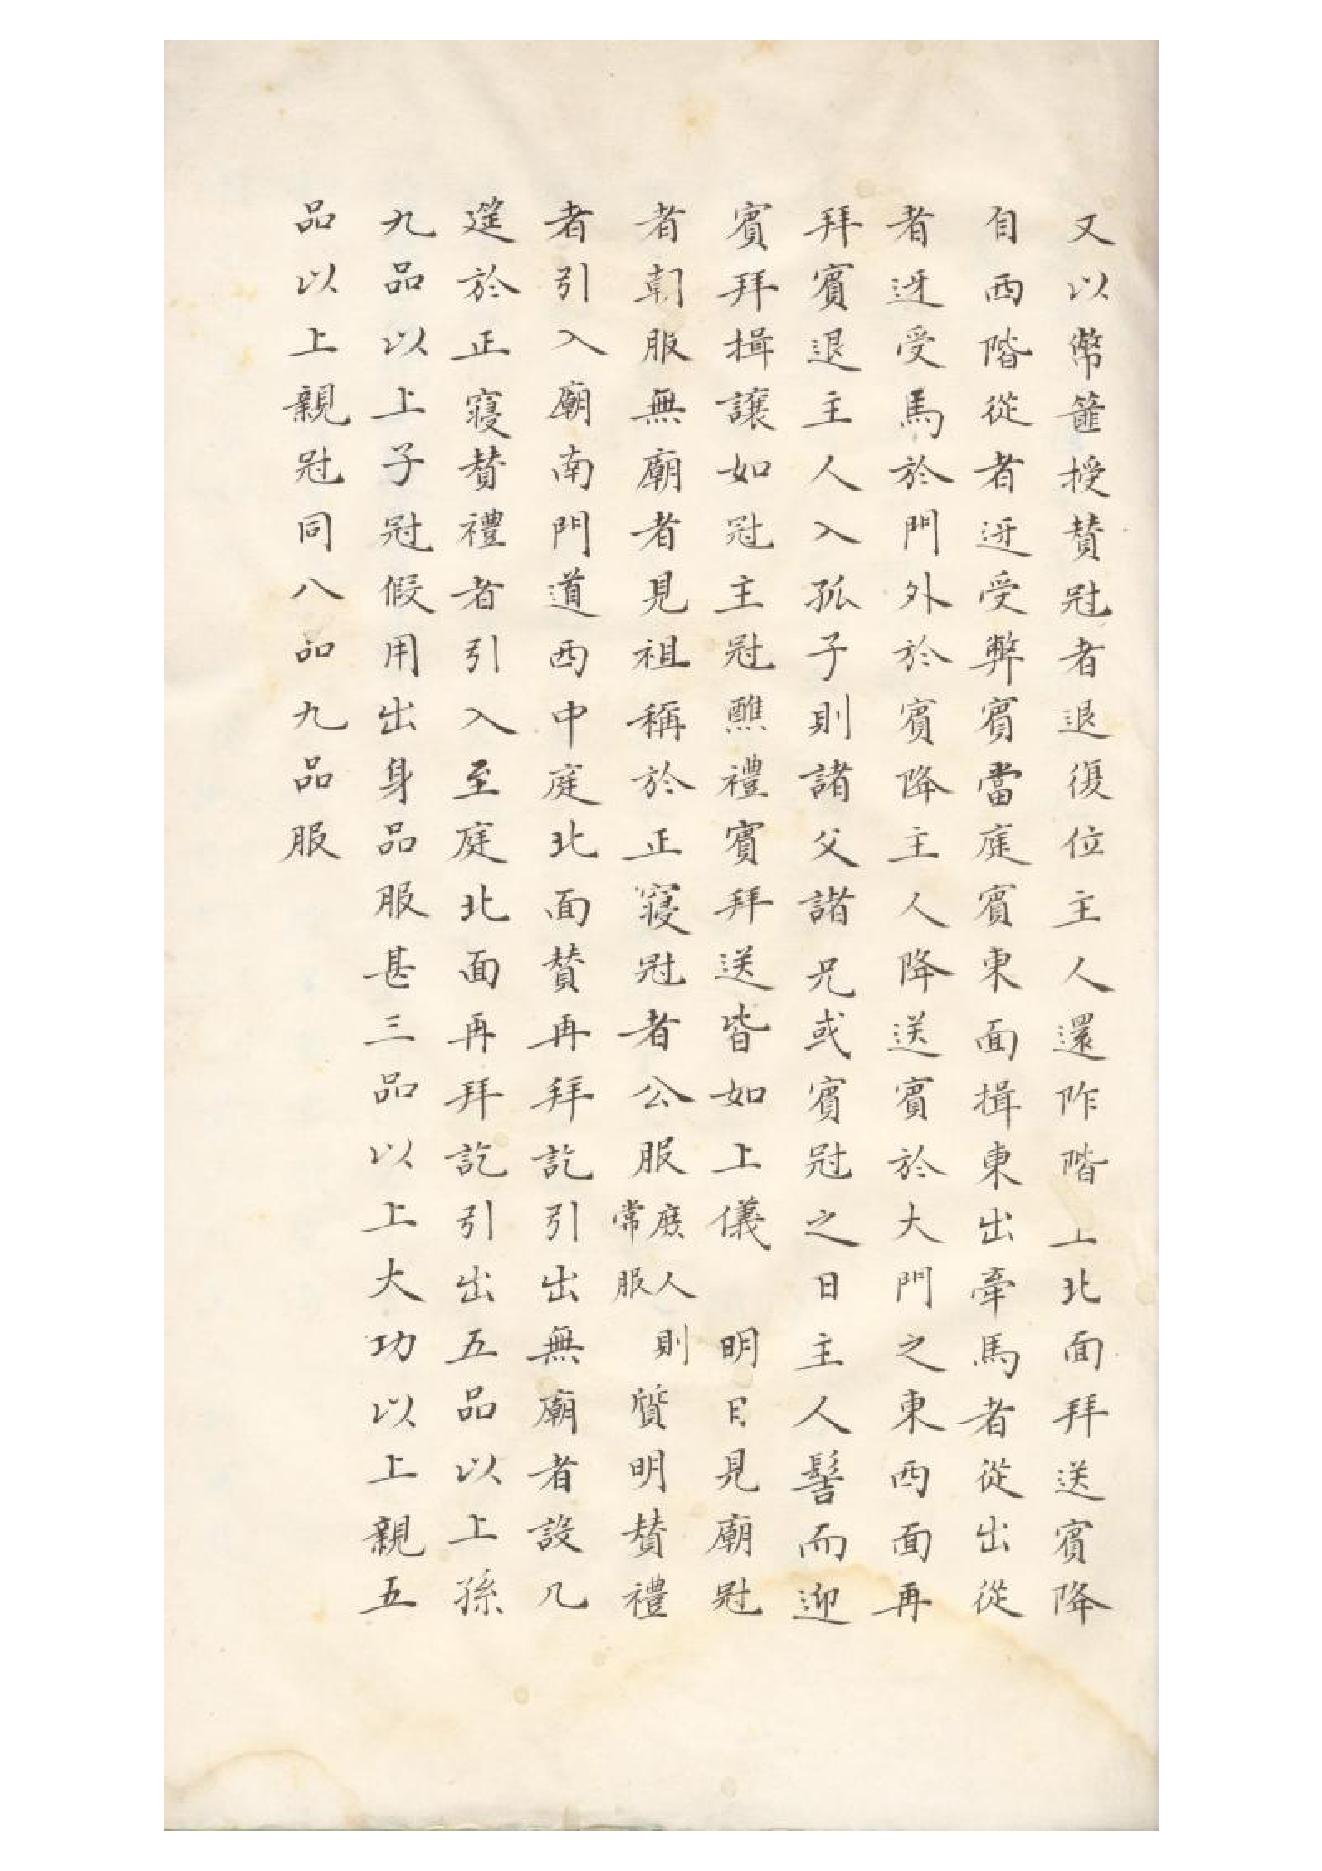 又以幣篚授賛冠者退復位主人還阼階上北面拜送賓降
自西階從者迓受弊賓當庭賓東面揖東出牽馬者從出從
者迓受馬於門外於賓降主人降送賓於大門之東西面再
拜賓退主人入孤子則諸父諸兄或賓冠之日主人髻而迎
賓拜揖讓如冠主冠醮禮賓拜送皆如上儀　明日見廟冠
者朝服無廟者見祖稱於正寢冠者公服庶人則常服質明賛禮
者引入廟南門道西中庭北面賛再拜訖引出無廟者設几
筵於正寢賛禮者引入至庭北面再拜訖引出五品以上孫
九品以上子冠假用出身品服甚三品以上大功以上親五
品以上親冠同八品九品服